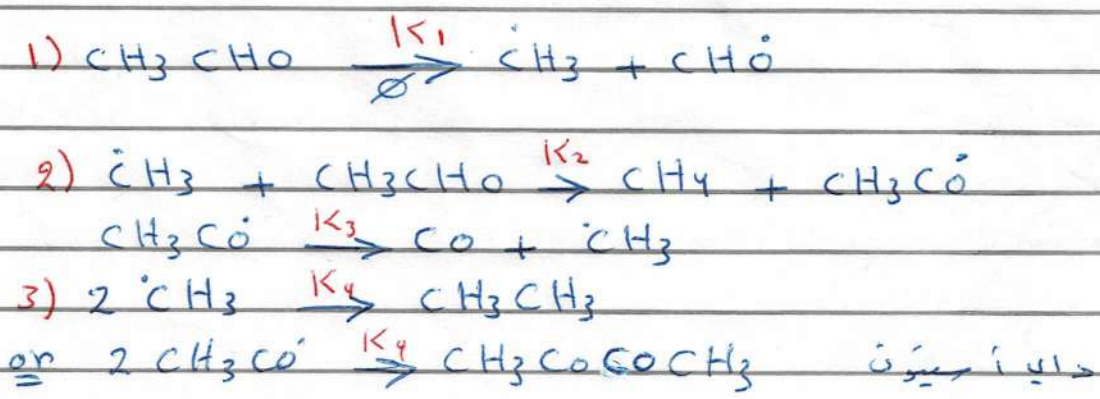 1) CH3 CHO —K1→ ĊH3 + CHȮ
∅
2) ĊH3 + CH3CHO —K2→ CH4 + CH3CȮ
CH3CȮ —K3→ CO + ĊH3
3) 2 ĊH3 —K4→ CH3CH3
or 2 CH3CȮ —K4→ CH3COCOCH3 داي أسيتون